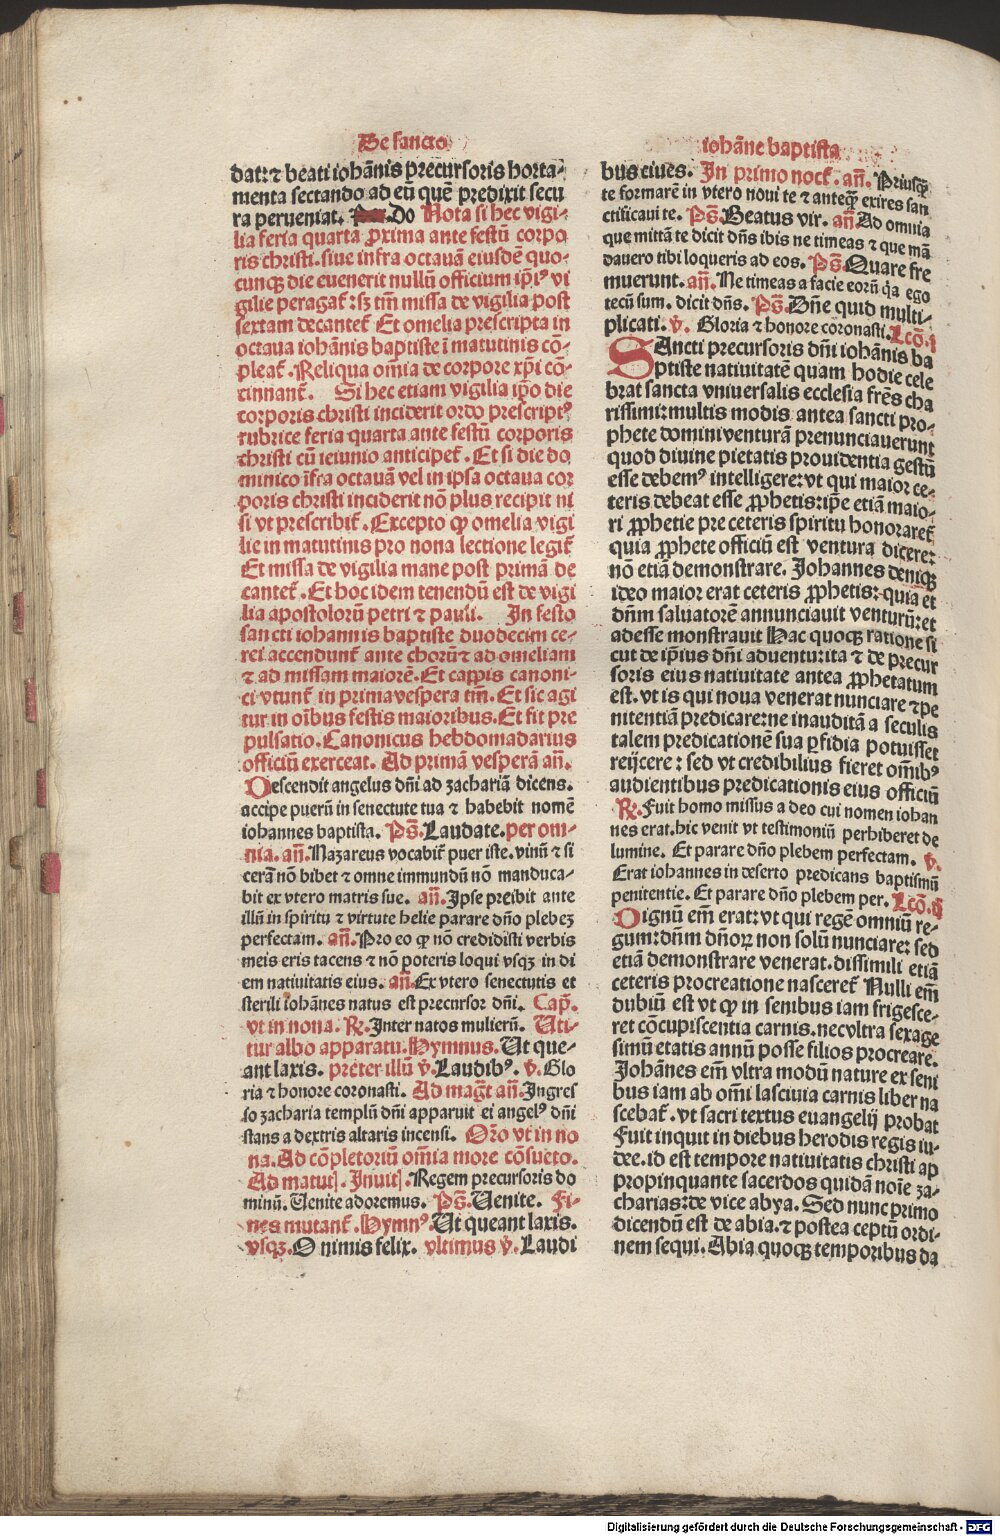 De sancto
datꝛ ⁊ beati iohānis precursoris horta-
menta sectando ad eū quē predixit secu
ra perueniat. Do Nota si hec vigi-
lia feria quarta ꝓxima ante festū corpo
ris christi. siue infra octauā eiusdē quo-
cunqꝫ die euenerit nullū officium ip̄iꝰ vi
gilie peragat̄ : sꝫ tm̄ missa de vigilia post
sextam decantet̄ Et omelia prescripta in
octaua iohānis baptiste ī matutinis cō-
pleat̄. Reliqua om̄ia de corpore xp̄i cō-
cinnant̄. Si hec etiam vigilia ip̄o die
corporis christi inciderit ordo prescriptꝰ
rubrice feria quarta ante festū corporis
christi cū ieiunio anticipet̄. Et si die do
minico īfra octauā vel in ipsa octaua cor
poris christi inciderit nō plus recipit ni
si vt prescribit̄. Excepto ꝙ omelia vigi
lie in matutinis pro nona lectione legit̄
Et missa de vigilia mane post primā de
cantet̄. Et hoc idem tenendū est de vigi
lia apostolorū petri ⁊ pauli. In festo
sancti iohannis baptiste duodecim ce-
rei accendunt̄ ante chorū ⁊ ad omeliam
⁊ ad missam maiorē. Et cappis canoni-
ci vtunt̄ in prima vespera tm̄. Et sic agi
tur in oībus festis maioribus. Et fit pre
pulsatio. Canonicus hebdomadarius
officiū exerceat. Ad primā vesperā an̄.
Descendit angelus dn̄i ad zachariā dicens.
accipe puerū in senectute tua ⁊ habebit nomē
iohannes baptista. Ps̄. Laudate. per om-
nia. an̄. Nazareus vocabit̄ puer iste. vinū ⁊ si
cerā nō bibet ⁊ omne immundū nō manduca-
bit ex vtero matris sue. an̄. Ipse preibit ante
illū in spiritu ⁊ virtute helie parare dn̄o plebeꝫ
perfectam. an̄. Pro eo ꝙ nō credidisti verbis
meis eris tacens ⁊ nō poteris loqui vsqꝫ in di
em natiuitatis eius. an̄. Ex vtero senectutis et
sterili iohānes natus est precursor dn̄i. Cap̄.
vt in nona. ℟. Inter natos mulierū. Uti-
tur albo apparatu. Hymnus. Ut que-
ant laxis. preter illū v̄. Laudibꝰ. v̄. Glo
ria ⁊ honore coronasti. Ad magt̄ an̄. Ingres
so zacharia templū dn̄i apparuit ei angelꝰ dn̄i
stans a dextris altaris incensi. Or̄o vt in no
na. Ad cōpletoriū om̄ia more cōsueto.
Ad matut̄. Inuit̄. Regem precursoris do
minū. Uenite adoremus. Ps̄. Uenite. Fi-
nes mutant̄. Hymnꝰ. Ut queant laxis.
vsqꝫ. O nimis felix. vltimus v̄. Laudi
iohāne baptista
bus ciues. In primo noct̄. an̄. Priusqꝫ
te formarē in vtero noui te ⁊ anteqꝫ exires san
ctificaui te. Ps̄. Beatus vir. an̄. Ad omnia
que mittā te dicit dn̄s ibis ne timeas ⁊ que mā
dauero tibi loqueris ad eos. Ps̄. Quare fre
muerunt. an̄. Ne timeas a facie eorū q̄a ego
tecū sum. dicit dn̄s. Ps̄. Dn̄e quid multi-
plicati. v̄. Gloria ⁊ honore coronasti. Lcō. i
SAncti precursoris dn̄i iohānis ba
ptiste natiuitatē quam hodie cele
brat sancta vniuersalis ecclesia fr̄es cha
rissimi: multis modis antea sancti pro-
phete domini venturā prenunciauerunt
quod diuine pietatis prouidentia gestū
esse debemꝰ intelligere: vt qui maior ce-
teris debeat esse ꝓphetis: ip̄e etiā maio-
ri ꝓphetie pre ceteris spiritu honoraret̄
quia ꝓphete officiū est ventura dicere:
nō etiā demonstrare. Johannes deniqꝫ
ideo maior erat ceteris ꝓphetis: quia et
dn̄m saluatorē annunciauit venturū: et
adesse monstrauit Hac quoqꝫ ratione si
cut de ip̄ius dn̄i aduentu: ita ⁊ de precur
soris eius natiuitate antea ꝓphetatum
est. vt is qui noua venerat nunciare ⁊ pe
nitentiā predicare: ne inauditā a seculis
talem predicationē sua ꝑfidia potuisset
reijcere : sed vt credibilius fieret om̄ibꝰ
audientibus predicationis eius officiū
℟. Fuit homo missus a deo cui nomen iohan
nes erat. hic venit vt testimoniū perhiberet de
lumine. Et parare dn̄o plebem perfectam. v̄.
Erat iohannes in deserto predicans baptismū
penitentie. Et parare dn̄o plebem per. Lcō. ij
Dignū em̄ erat: vt qui regē omniū re-
gum: dn̄m dn̄oꝝ non solū nunciare: sed
etiā demonstrare venerat. dissimili etiā
ceteris procreatione nasceret̄ Nulli em̄
dubiū est vt ꝙ in senibus iam frigesce-
ret cōcupiscentia carnis. nec vltra sexage
simū etatis annū posse filios procreare.
Johānes em̄ vltra modū nature ex seni
bus iam ab om̄i lasciuia carnis liber na
scebat̄. vt sacri textus euangelij probat
Fuit inquit in diebus herodis regis iu-
dee. id est tempore natiuitatis christi ap
propinquante sacerdos quidā noīe za-
charias: de vice abya. Sed nunc primo
dicendū est de abia. ⁊ postea ceptū ordi-
nem sequi. Abia quoqꝫ temporibus da
Digitalisierung gefördert durch die Deutsche Forschungsgemeinschaft - DFG